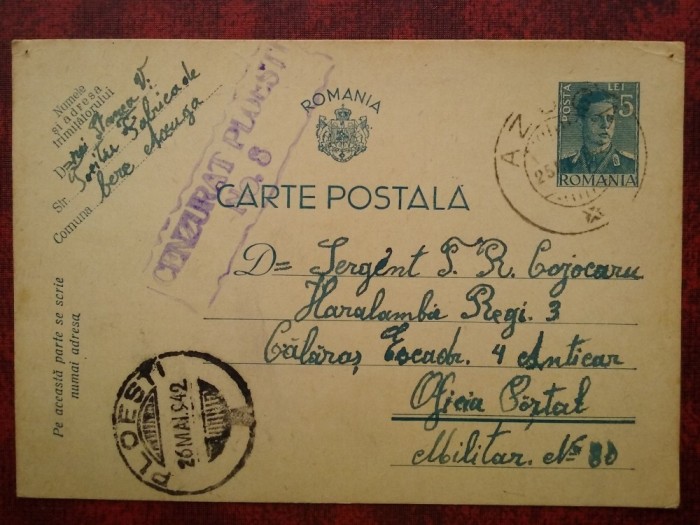 Numele
și adresa
trimițătorului
D=
Fabrica de
Str.
bere Azuga
Comuna
CENZURAT PLOESTI
NO. 8
ROMANIA
CARTE POSTALA
POSTA LEI 5
ROMANIA
AZUGA
D= Sergent T. R. Cojocaru
Haralamba Regi. 3
Călăraș Escadr. 4 Anticar
Oficiu Poștal
Militar. No 80
Pe această parte se scrie
numai adresa
PLOESTI
26 MAI.942